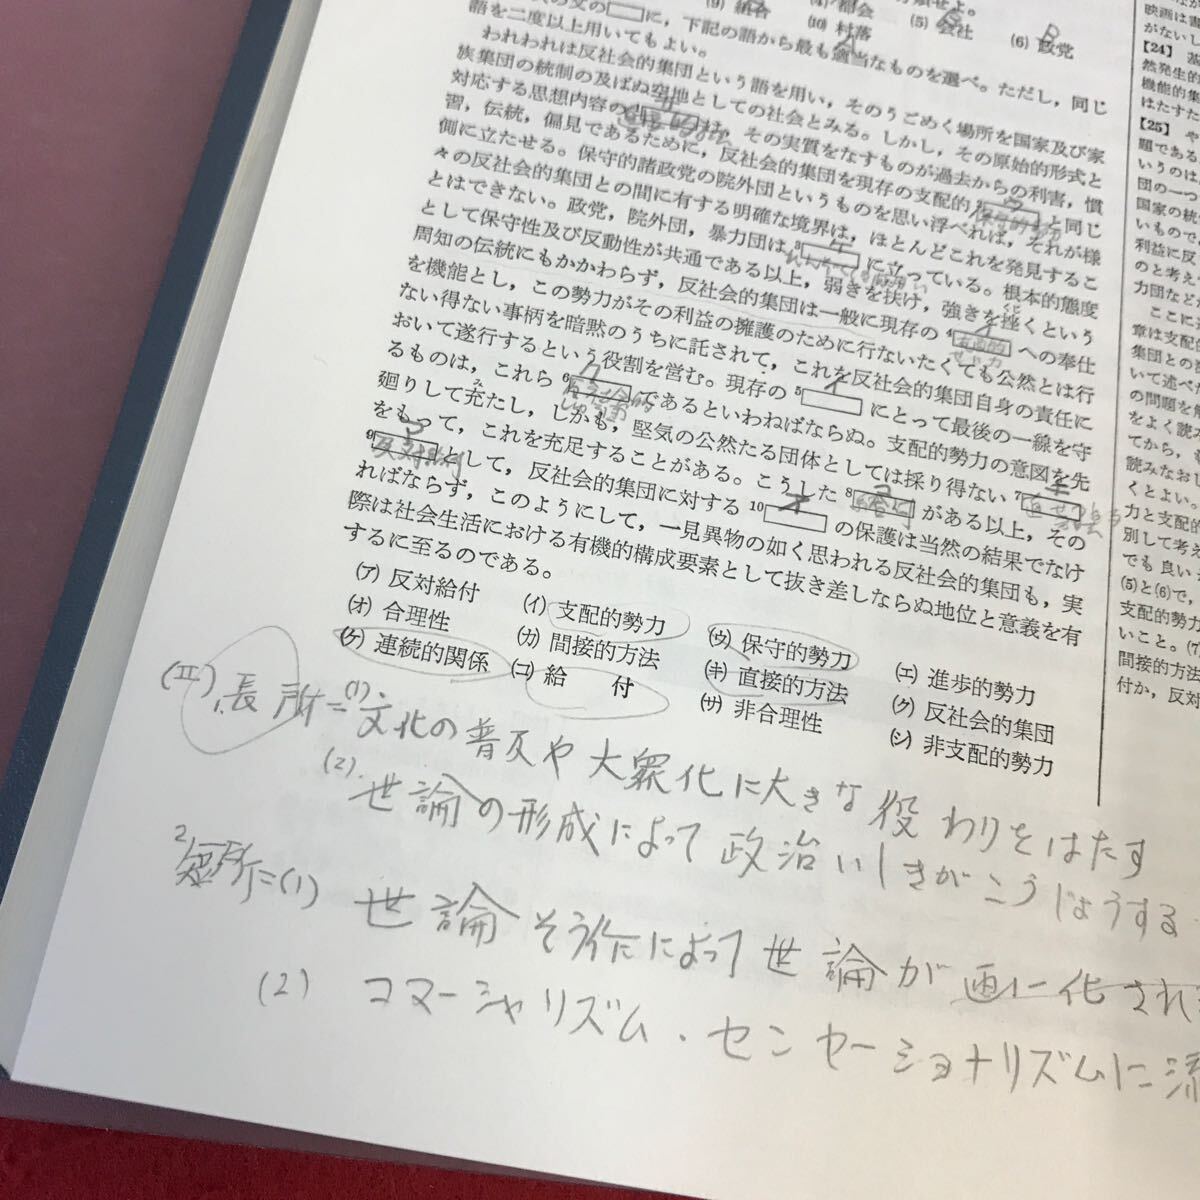 (9) 組合 (4) 都会 (5) 会社 (6) 政党
(10) 村落
に，下記の語から最も適当なものを選べ。ただし，同じ
語を二度以上用いてもよい。
われわれは反社会的集団という語を用い，そのうごめく場所を国家及び家
族集団の統制の及ばぬ空地としての社会とみる。しかし，その原始的形式と
対応する思想内容の 1 は，その実質をなすものが過去からの利害，慣
習，伝統，偏見であるために，反社会的集団を現存の支配的 2 と同じ
側に立たせる。保守的諸政党の院外団というものを思い浮べれば，それが様
々の反社会的集団との間に有する明確な境界は，ほとんどこれを発見するこ
とはできない。政党，院外団，暴力団は 3 に立っている。根本的態度
として保守性及び反動性が共通である以上，弱きを扶け，強きを挫くという
周知の伝統にもかかわらず，反社会的集団は一般に現存の 4 への奉仕
を機能とし，この勢力がその利益の擁護のために行ないたくても公然とは行
ない得ない事柄を暗黙のうちに託されて，これを反社会的集団自身の責任に
おいて遂行するという役割を営む。現存の 5 にとって最後の一線を守
るものは，これら 6 であるといわねばならぬ。支配的勢力の意図を先
廻りして充たし，しかも，堅気の公然たる団体としては採り得ない 7
をもって，これを充足することがある。こうした 8 がある以上，その
9 として，反社会的集団に対する 10 の保護は当然の結果でなけ
ればならず，このようにして，一見異物の如く思われる反社会的集団も，実
際は社会生活における有機的構成要素として抜き差しならぬ地位と意義を有
するに至るのである。
(ア) 反対給付 (イ) 支配的勢力 (ウ) 保守的勢力 (エ) 進歩的勢力
(オ) 合理性 (カ) 間接的方法 (キ) 直接的方法 (ク) 反社会的集団
(ケ) 連続的関係 (コ) 給付 (サ) 非合理性 (シ) 非支配的勢力
(Ⅱ) 1. 長所＝(1) 文化の普及や大衆化に大きな役わりをはたす
(2) 世論の形成によって政治いしきがこうじょうする
2 短所＝(1) 世論そう作によって世論が画一化され
(2) コマーシャリズム・センセーショナリズムに流
映画は書
がないし
【24】 基
然発生的
機能的集
はたすた
【25】 や
題である
いうのは
団の一つ
国家の統
いもので
利益に反
のと考え
力団など
ここに
章は支配的
集団との
いて述べ
の問題を解
をよく読ん
てから，も
読みなおし
くとよい。
力と支配的
別して考え
でも良い
(5)と(6)で，
支配的勢力
いこと。(7)
間接的方法
付か，反対